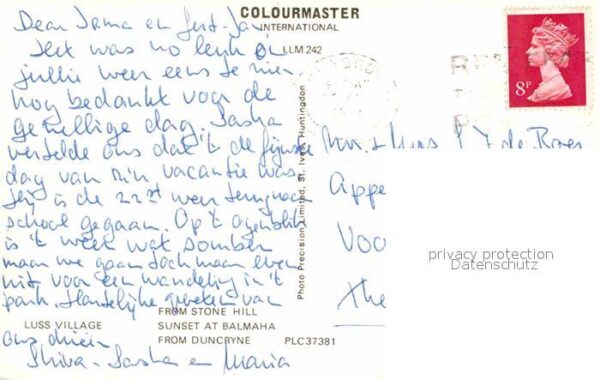 COLOURMASTER
INTERNATIONAL
LLM 242
Dear Irma en
Jert was no leuk om
jullie weer eens te zien
nog bedankt voor de
gezellige dag. Sasha
vertelde ons dat 't de fijnste
dag van z'n vacantie was
is de 22st weer terug naar
school gegaan. Op 't ogenblik
is 't weer wat somber
maar we gaan toch maar even
uit voor een wandeling in 't
park. Hartelijke groeten van
ons drieën
Shiva - Sasha en Maria
Photo Precision Limited, St. Ives, Huntingdon
8P
de Boer
Appe
Voo
The
privacy protection
Datenschutz
FROM STONE HILL
LUSS VILLAGE SUNSET AT BALMAHA
FROM DUNCRYNE PLC37381